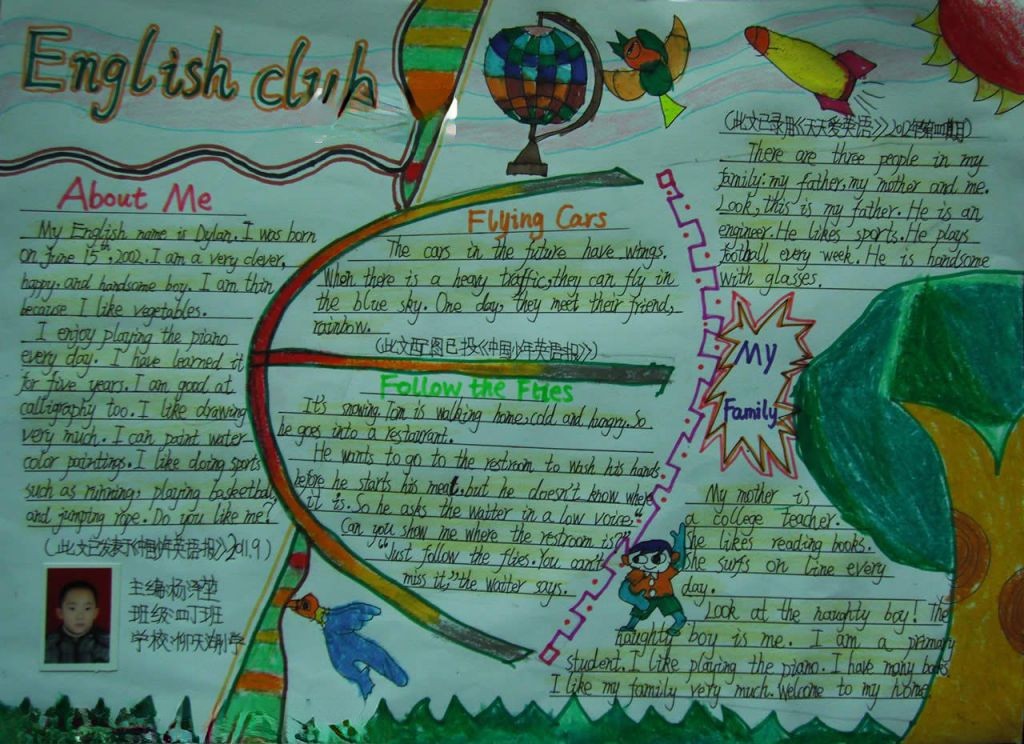 English club
About Me
My English name is Dylan. I was born
on June 15th, 2002. I am a very clever,
happy and handsome boy. I am thin
because I like vegetables.
I enjoy playing the piano
every day. I have learned it
for five years. I am good at
calligraphy too. I like drawing
very much. I can paint water-
color paintings. I like doing sports
such as running, playing basketball
and jumping rope. Do you like me?
(此文已发表于《中国少年英语报》2011.9)
主编:杨泽堃
班级:四丁班
学校:
Flying Cars
The cars in the future have wings.
When there is a heavy traffic, they can fly in
the blue sky. One day, they meet their friend,
rainbow.
(此文西广图已投《中国少年英语报》)
Follow the Flies
It's snowing. Tom is walking home, cold and hungry. So
he goes into a restaurant.
He wants to go to the restroom to wash his hands
before he starts his meat. but he doesn't know where
it is. So he asks the waiter in a low voice, "
Can you show me where the restroom is?"
"Just follow the flies. You can't
miss it," the waiter says.
(此文已录用《天天爱英语》2012年第四期)
There are three people in my
family: my father, my mother and me.
Look, this is my father. He is an
engineer. He likes sports. He plays
football every week. He is handsome
with glasses.
My
Family
My mother is
a college teacher.
She likes reading books.
She surfs on line every
day.
Look at the naughty boy! The
naughty boy is me. I am a primary
student. I like playing the piano. I have many books
I like my family very much. Welcome to my home